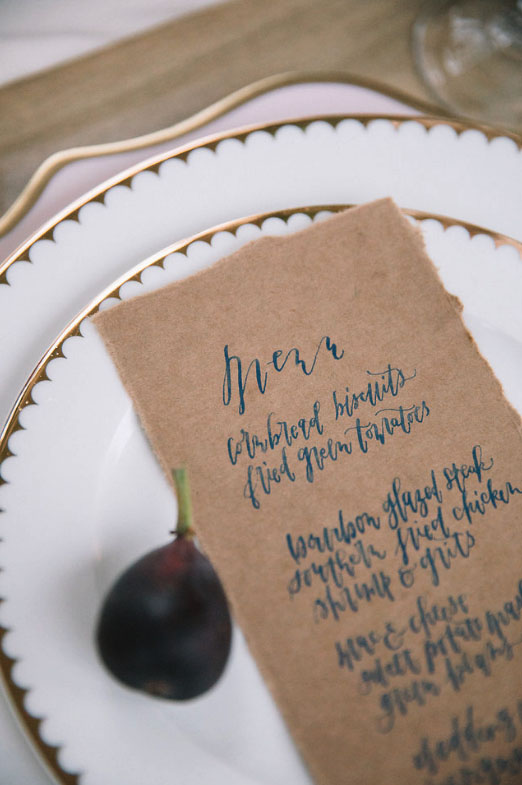 Menu
cornbread biscuits
fried green tomatoes
bourbon glazed steak
southern fried chicken
shrimp & grits
mac & cheese
sweet potato
green beans
wedding